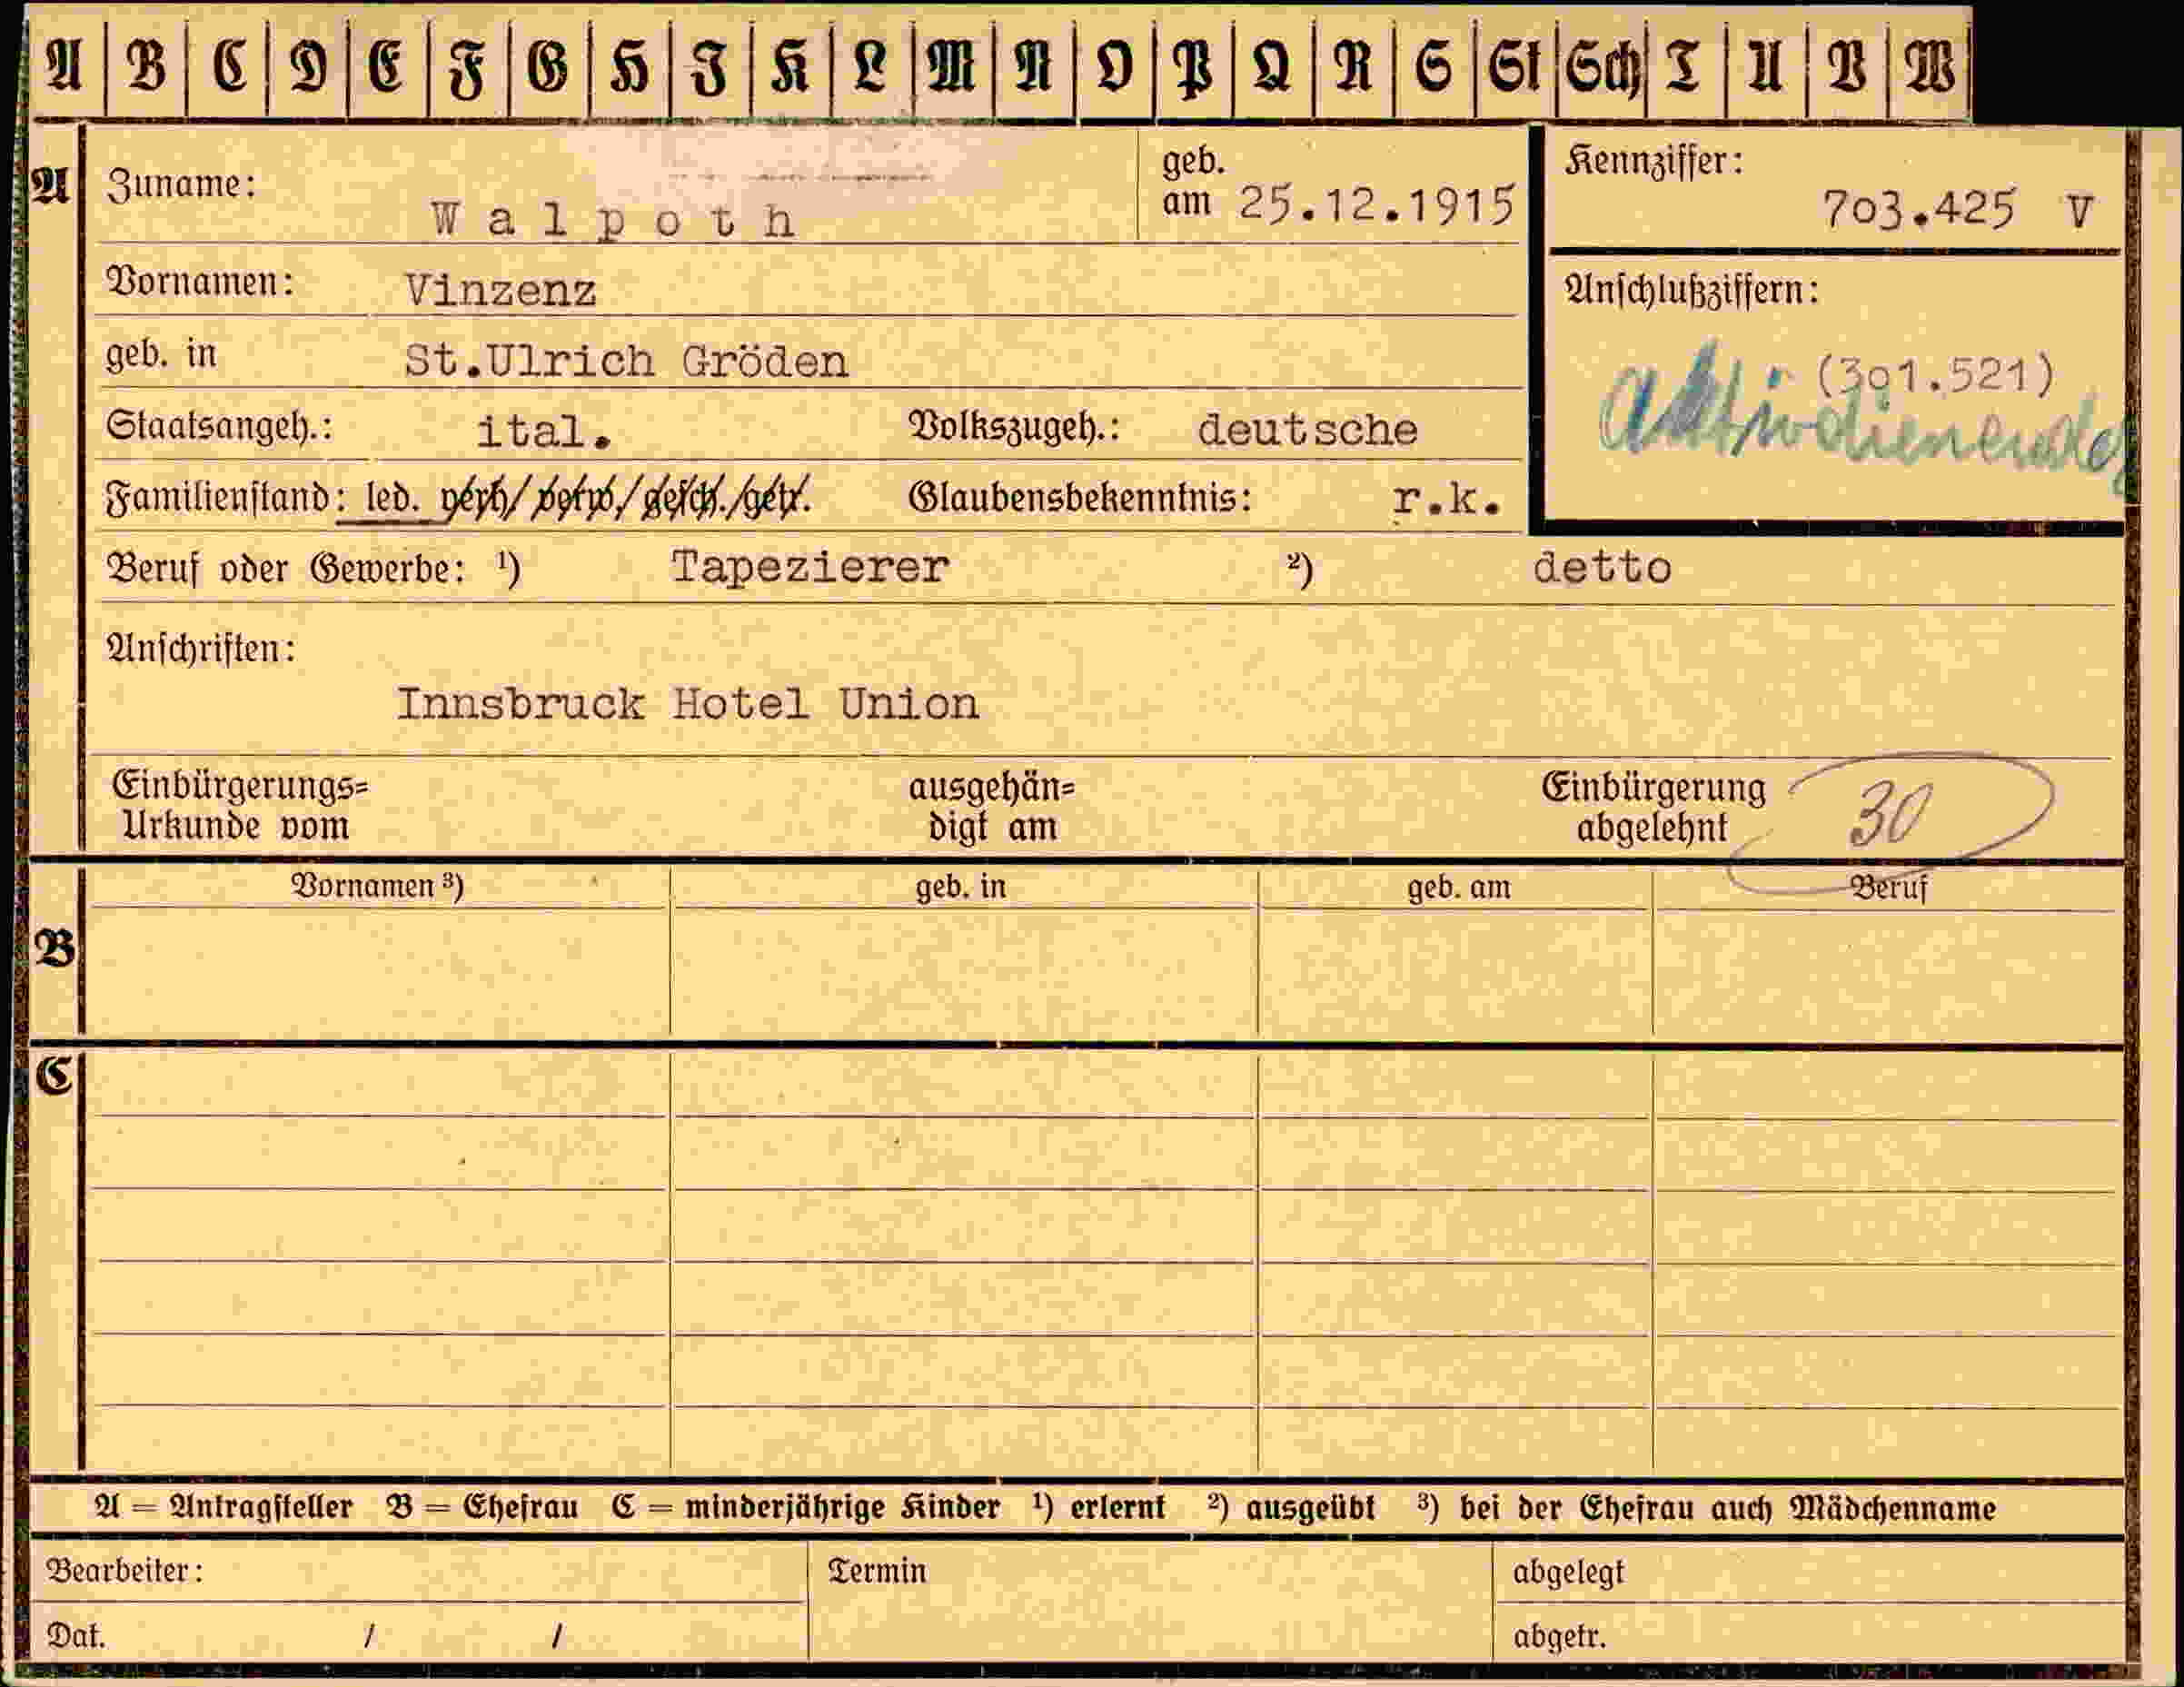 A B C D E F G H J K L M N O P Q R S St Sch T U V W
A Zuname: Walpoth geb. am 25.12.1915 Kennziffer: 703.425 V
Vornamen: Vinzenz Anschlußziffern:
geb. in St.Ulrich Gröden (301.521)
Staatsangeh.: ital. Volkszugeh.: deutsche aktivdienender
Familienstand: led. verh/verw/gesch./getr. Glaubensbekenntnis: r.k.
Beruf oder Gewerbe: ¹) Tapezierer ²) detto
Anschriften:
Innsbruck Hotel Union
Einbürgerungs=
Urkunde vom
ausgehän=
digt am
Einbürgerung
abgelehnt
30
Vornamen ³) geb. in geb. am Beruf
B
C
A = Antragsteller B = Ehefrau C = minderjährige Kinder ¹) erlernt ²) ausgeübt ³) bei der Ehefrau auch Mädchenname
Bearbeiter: Termin abgelegt
Dat. / / abgetr.